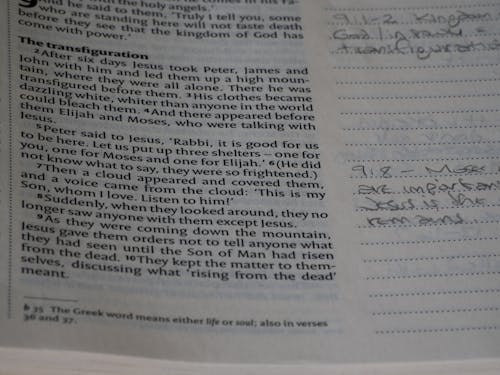 with the holy angels.'
And he said to them, 'Truly I tell you, some
who are standing here will not taste death
before they see that the kingdom of God has
come with power.'
The transfiguration
2After six days Jesus took Peter, James and
John with him and led them up a high moun-
tain, where they were all alone. There he was
transfigured before them. 3His clothes became
dazzling white, whiter than anyone in the world
could bleach them. 4And there appeared before
them Elijah and Moses, who were talking with
Jesus.
5Peter said to Jesus, 'Rabbi, it is good for us
to be here. Let us put up three shelters – one for
you, one for Moses and one for Elijah.' 6(He did
not know what to say, they were so frightened.)
7Then a cloud appeared and covered them,
and a voice came from the cloud: 'This is my
Son, whom I love. Listen to him!'
8Suddenly, when they looked around, they no
longer saw anyone with them except Jesus.
9As they were coming down the mountain,
Jesus gave them orders not to tell anyone what
they had seen until the Son of Man had risen
from the dead. 10They kept the matter to them-
selves, discussing what 'rising from the dead'
meant.
b 35 The Greek word means either life or soul; also in verses
36 and 37.
9:1-2 Kingdom
God
transfiguratio
9:8 – Mose
are importan
Jesus is the
remains